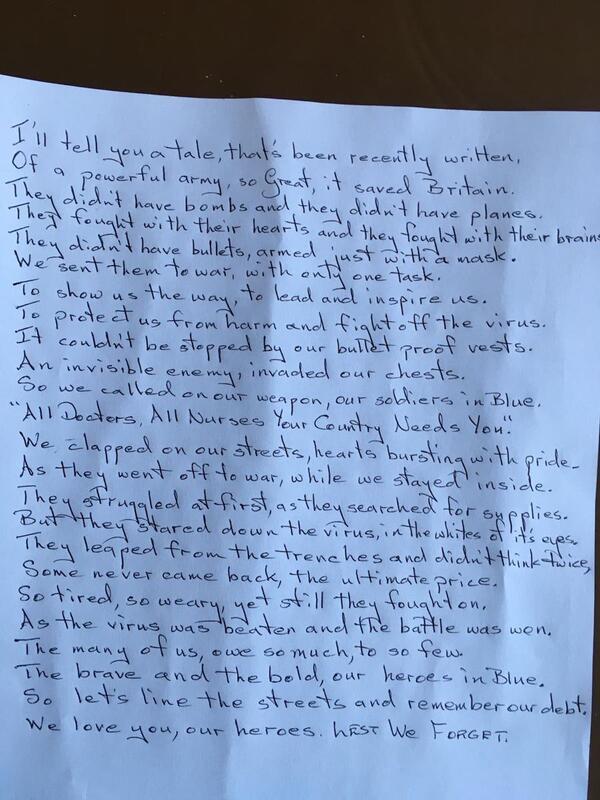 I'll tell you a tale, that's been recently written,
Of a powerful army, so Great, it saved Britain.
They didn't have bombs and they didn't have planes.
They fought with their hearts and they fought with their brains
They didn't have bullets, armed just with a mask.
We sent them to war, with only one task.
To show us the way, to lead and inspire us.
To protect us from harm and fight off the virus.
It couldn't be stopped by our bullet proof vests.
An invisible enemy, invaded our chests.
So we called on our weapon, our soldiers in Blue.
"All Doctors, All Nurses Your Country Needs You".
We clapped on our streets, hearts bursting with pride-
As they went off to war, while we stayed inside.
They struggled at first, as they searched for supplies.
But they stared down the virus, in the whites of it's eyes.
They leaped from the trenches and didn't think twice,
Some never came back, the ultimate price.
So tired, so weary, yet still they fought on.
As the virus was beaten and the battle was won.
The many of us, owe so much, to so few.
The brave and the bold, our heroes in Blue.
So let's line the streets and remember our debt.
We love you, our heroes. LEST WE FORGET.